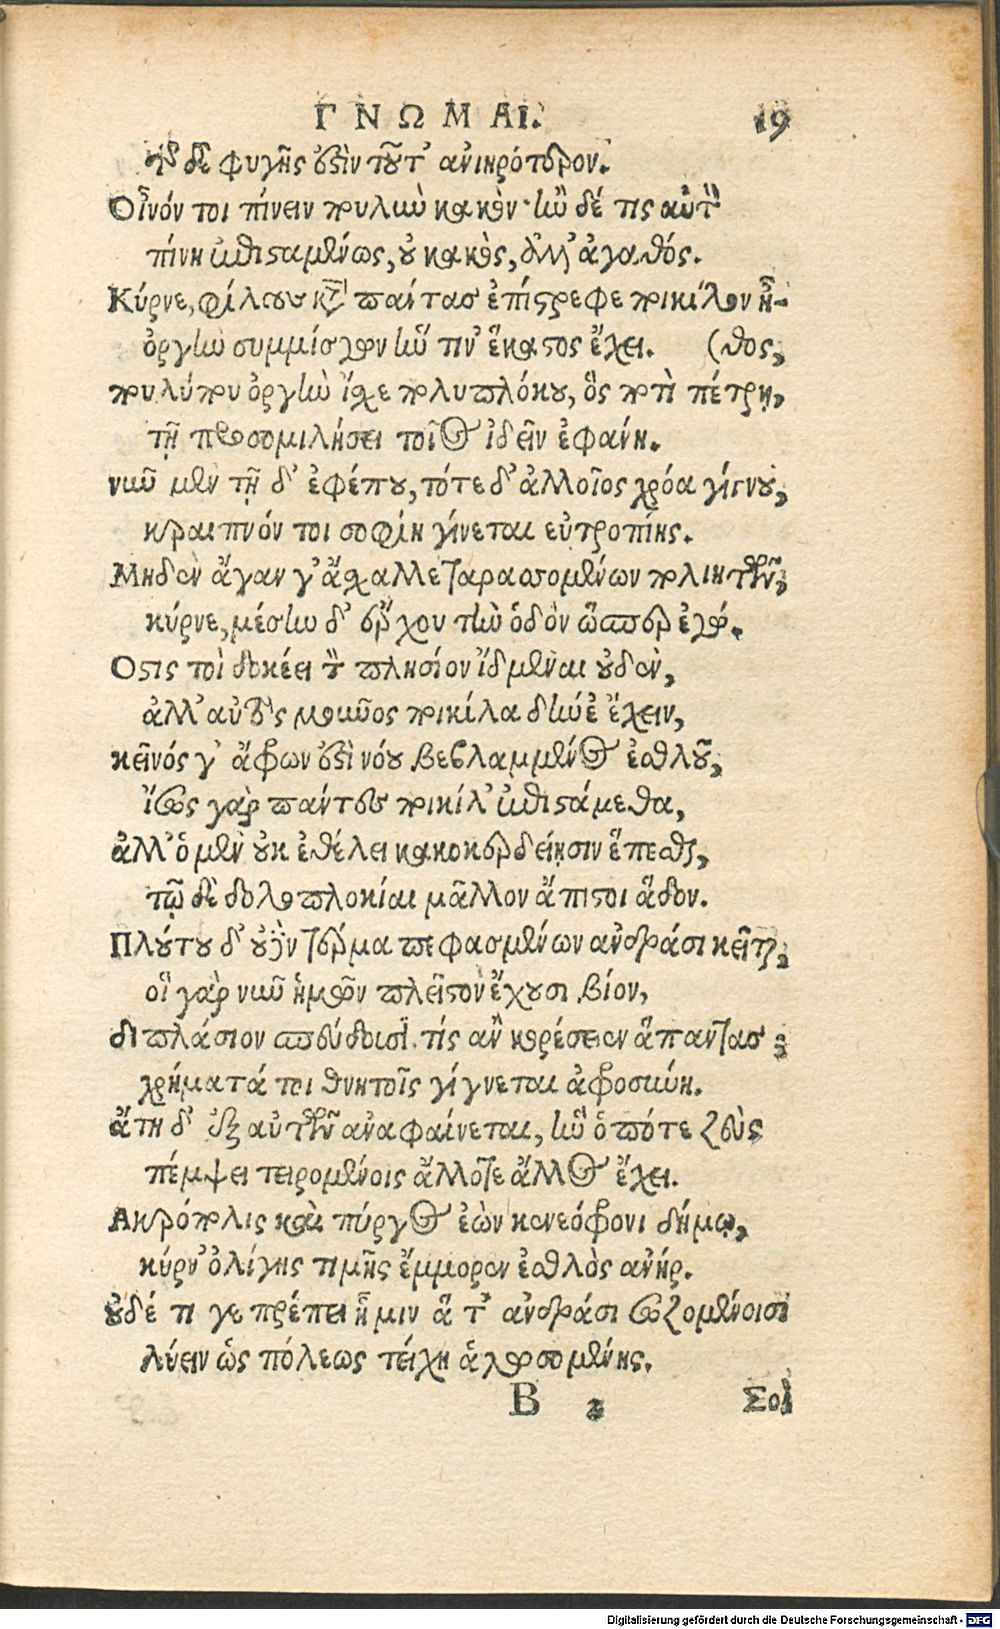 ΓΝΩΜΑΙ. 19
τῆς δὲ φυγῆς ἐστὶν τοῦτ' ἀνιηρότερον.
Οἶνόν τοι πίνειν πουλὺν κακὸν· ἢν δέ τις αὐτὸν
πίνῃ ἐπισταμένως, οὐ κακὸς, ἀλλ' ἀγαθός.
Κύρνε, φίλους κατὰ πάντας ἐπίστρεφε ποικίλον ἦ-
ὀργὴν συμμίσγων ἥν τιν' ἕκαστος ἔχει. (θος,
πουλύπου ὀργὴν ἴσχε πολυπλόκου, ὃς ποτὶ πέτρῃ,
τῇ προσομιλήσει τοῖος ἰδεῖν ἐφάνη.
νῦν μὲν τῇ δ' ἐφέπου, τότε δ' ἀλλοῖος χρόα γίγνου,
κραιπνόν τοι σοφίη γίνεται εὐτροπίης.
Μηδὲν ἄγαν γ' ἄσχαλλε ταρασσομένων πολιητῶν,
κύρνε, μέσην δ' ἔρχου τὴν ὁδὸν ὥσπερ ἐγώ.
Οστις τοὶ δοκέει τὸν πλησίον ἴδμεναι οὐδὲν,
ἀλλ' αὐτὸς μοῦνος ποικίλα δήνε' ἔχειν,
κεῖνός γ' ἄφρων ἐστὶ νόου βεβλαμμένος ἐσθλοῦ,
ἴσως γὰρ πάντες ποικίλ' ἐπιστάμεθα,
ἀλλ' ὁ μὲν οὐκ ἐθέλει κακοκερδείῃσιν ἕπεσθαι,
τῷ δὲ δολοπλοκίαι μᾶλλον ἄπιστοι ἅδον.
Πλούτου δ' οὐδὲν τέρμα πεφασμένων ἀνδράσι κεῖται,
οἳ γὰρ νῦν ἡμῶν πλεῖστον ἔχουσι βίον,
διπλάσιον σπεύδουσι. τίς ἂν κορέσειεν ἅπαντας;
χρήματά τοι θνητοῖς γίγνεται ἀφροσύνη.
ἄτη δ' ἐξ αὐτῶν ἀναφαίνεται, ἣν ὁπότε ζεὺς
πέμψει τειρομένοις ἄλλοτε ἄλλος ἔχει.
Ακρόπολις καὶ πύργος ἐὼν κενεόφρονι δήμῳ,
κύρν' ὀλίγης τιμῆς ἔμμορεν ἐσθλὸς ἀνήρ.
οὐδέ τι γε πρέπει ἧμιν ἅ τ' ἀνδράσι σωζομένοισι
λύειν ὡς πόλεως τείχη ἁλωσομένης.
Β 2 Σοὶ
Digitalisierung gefördert durch die Deutsche Forschungsgemeinschaft - DFG